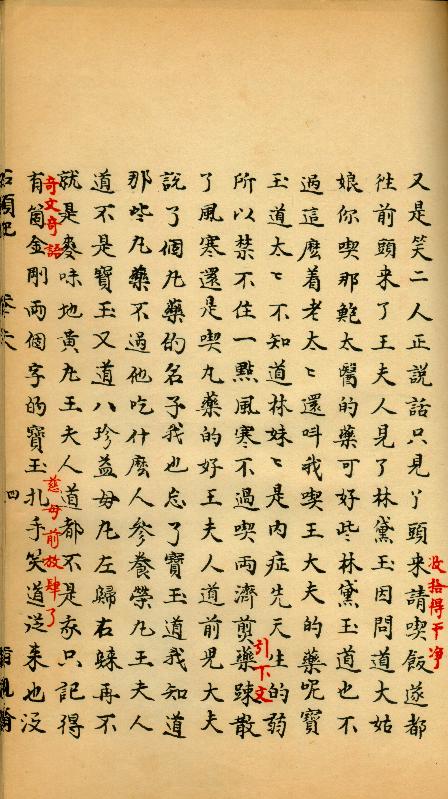 又是笑二人正說話只見丫頭來請喫飯遂都
徃前頭來了王夫人見了林黛玉因問道大姑
娘你喫那鮑太醫的藥可好些林黛玉道也不
過這麽着老太〻還呌我喫王大夫的藥呢寳
玉道太〻不知道林妹〻是内症先天生的弱
所以禁不住一㸃風寒不過喫両濟煎藥踈散
了風寒還是喫丸藥的好王夫人道前児大夫
說了個丸藥的名子我也忘了寳玉道我知道
那些丸藥不過他吃什麽人參養榮丸王夫人
道不是寳玉又道八珍益母丸左歸右歸再不
就是麥味地黄丸王夫人道都不是我只記得
有箇金剛両個字的寳玉扎手笑道從来也沒
收拾得干净
引下文
奇文奇語
慈母前放肆了
石頭記
四